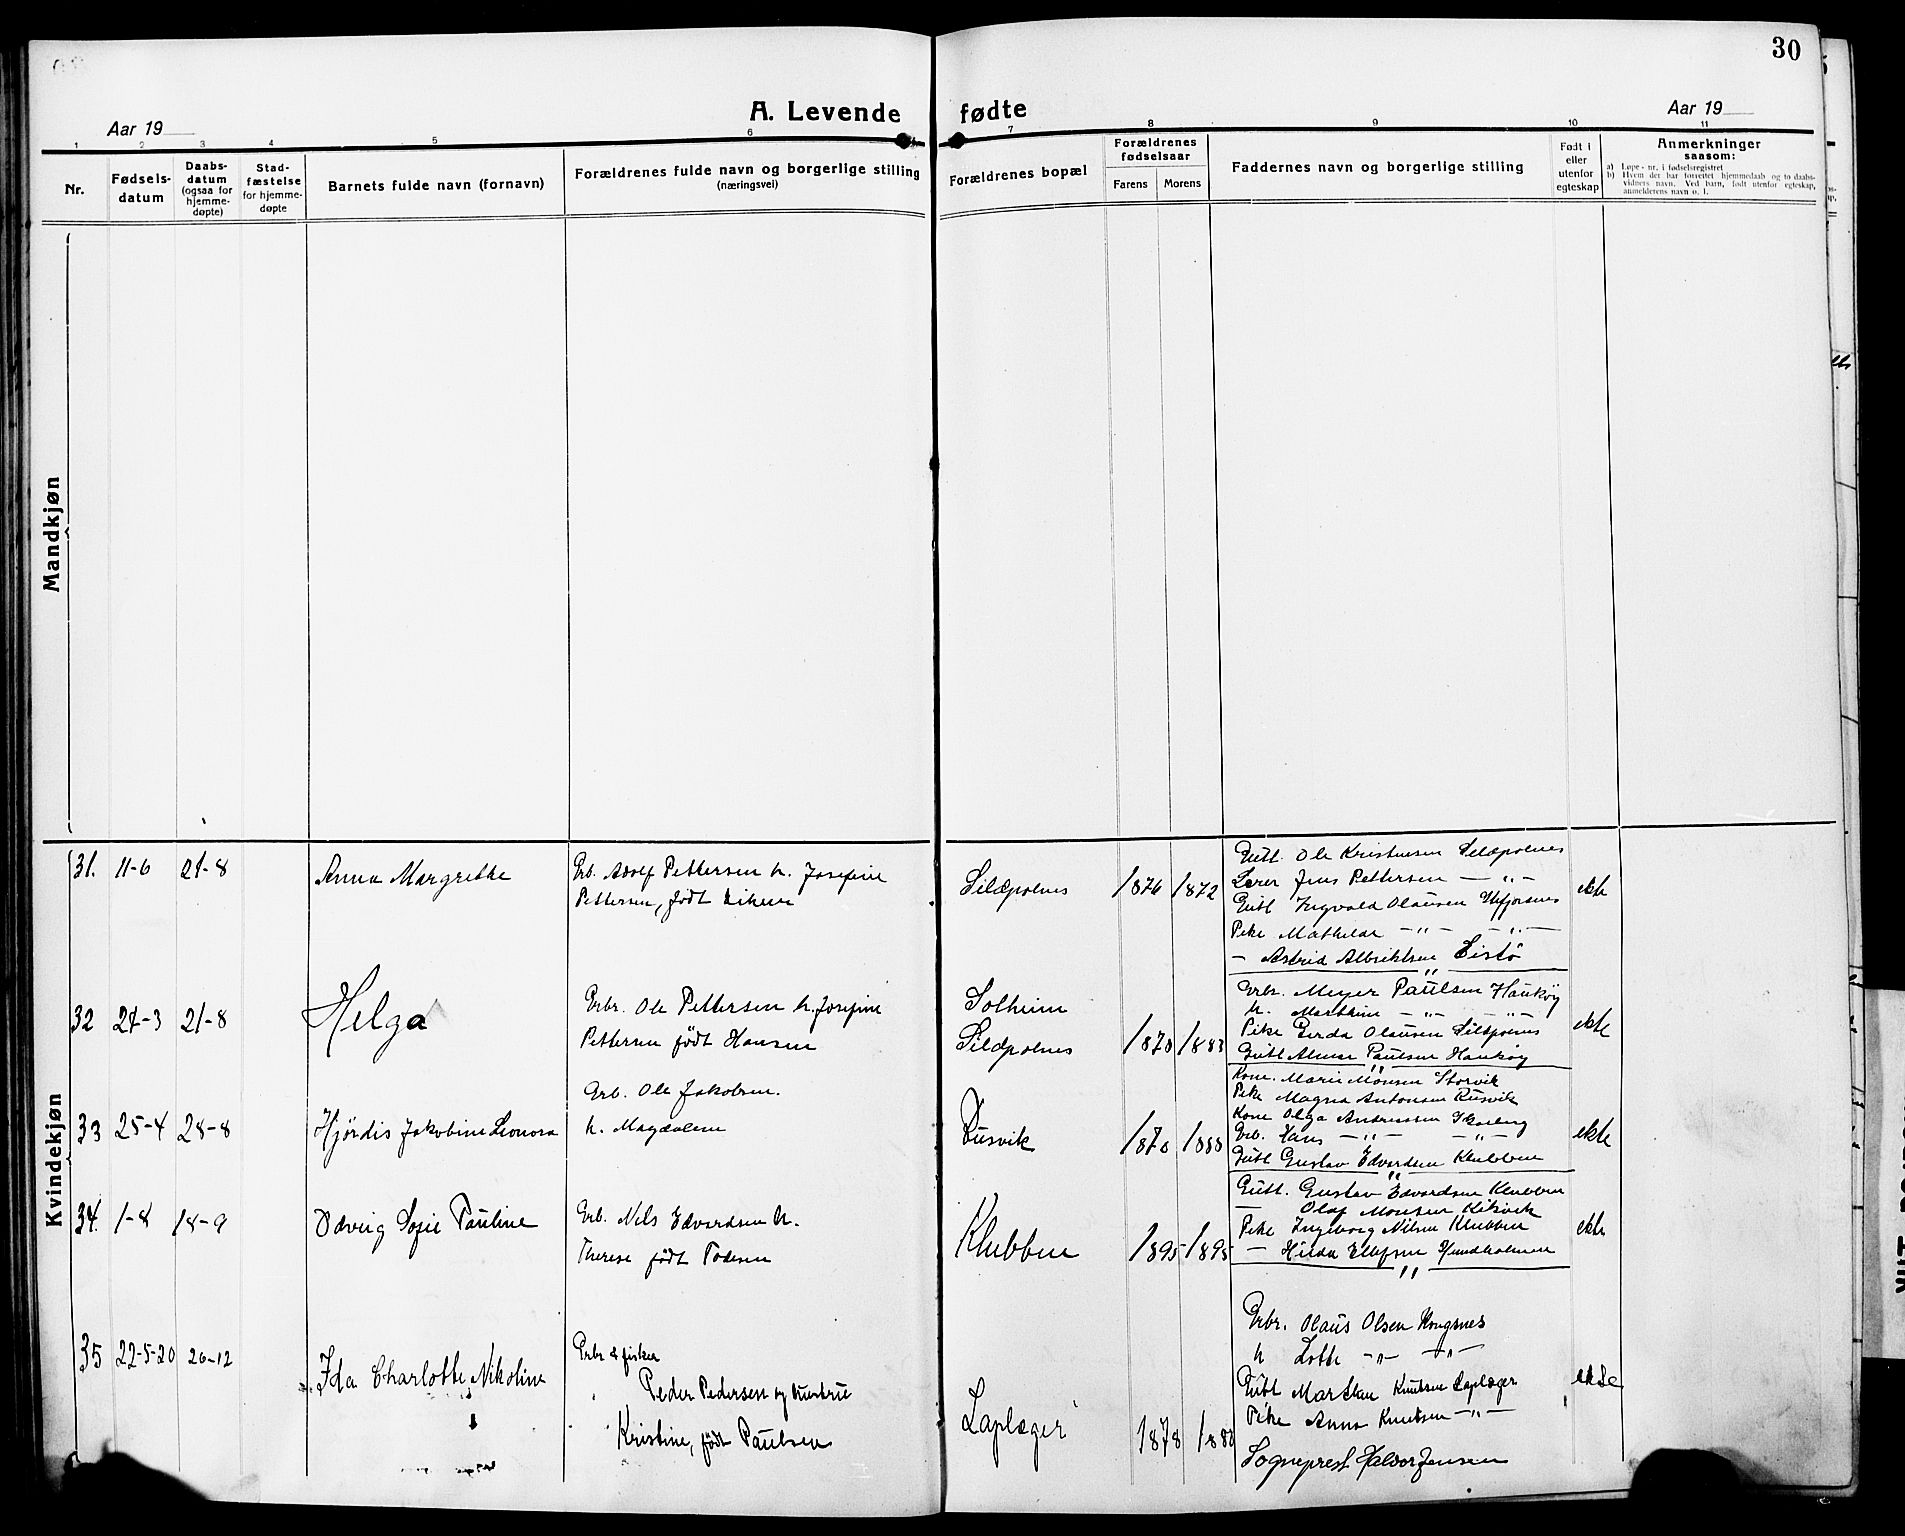 30
A. Levende fødte
Aar 19
Aar 19
1 2 3 4 5 6 7 8 9 10 11
Nr.
Fødsels-
datum
Daabs-
datum
(ogsaa for
hjemme-
døpte)
Stad-
fæstelse
for hjemme-
døpte
Barnets fulde navn (fornavn)
Forældrenes fulde navn og borgerlige stilling
(næringsvei)
Forældrenes bopæl
Forældrenes
fødselsaar
Farens
Morens
Faddernes navn og borgerlige stilling
Født i
eller
utenfor
egteskap
Anmerkninger
saasom:
a) Løpe-nr. i fødselsregistret
b) Hvem der har forrettet hjemmedaab og to daabs-
vidners navn. Ved barn, født utenfor egteskap,
anmelderens navn o. l.
Mandkjøn
Kvindekjøn
31. 11-6 21-8
Anna Margrethe
Erb. Adolf Pettersen h. Josefine
Pettersen, født
Sildpolnes
1876 1872
Gutt. Ole Kristensen Sildpolnes
Lærer Jens Pettersen — „ —
Gutt Ingvald Olausen
Pike Mathilde — „ — — „ —
— Astrid Albriktsen
ekte
32 24-3 21-8
Helga
Erbr. Ole Pettersen h. Josefine
Pettersen født Hansen
Solheim
Sildpolnes
1870 1883
Erbr. Meyer Paulsen Hankøy
h. — „ — — „ —
Pike Gerda Olausen Sildpolnes
Gutt Paulsen Hankøy
ekte
33 25-4 28-8
Hjørdis Jakobine Leonora
Erb. Ole Jakobsen.
h. Magdalene
Rusvik
1870 1880
Kone. Marie Monsen Storvik
Pike Magna Antonsen Rusvik
Kone Olga Andreassen
Erb. Hans — „ — — „ —
Gutt Gustav Edvardsen Klubben
ekte
34. 1-8 18-9
Odveig Sofie Pauline
Erb. Nils Edvardsen h.
Therese født
Klubben
1895 1895
Gutt. Gustav Edvardsen Klubben
— Olaf Monsen
Pike Ingeborg Nilsen Klubben
— Ellefsen Hundholmen
ekte
35 22-5-20 26-12
Ida Charlotte Nikoline
Erbr & fisker
Peder Pedersen og hustru
Kristine, født Paulsen
Laplæger
1878 1880
Erbr. Olaus Olsen Kongsnes
h Lotte — „ — — „ —
Gutt Marthin Knutsen Laplæger
Pike Anna Knutsen — „ —
Sogneprest Halvor Jensen
ekte